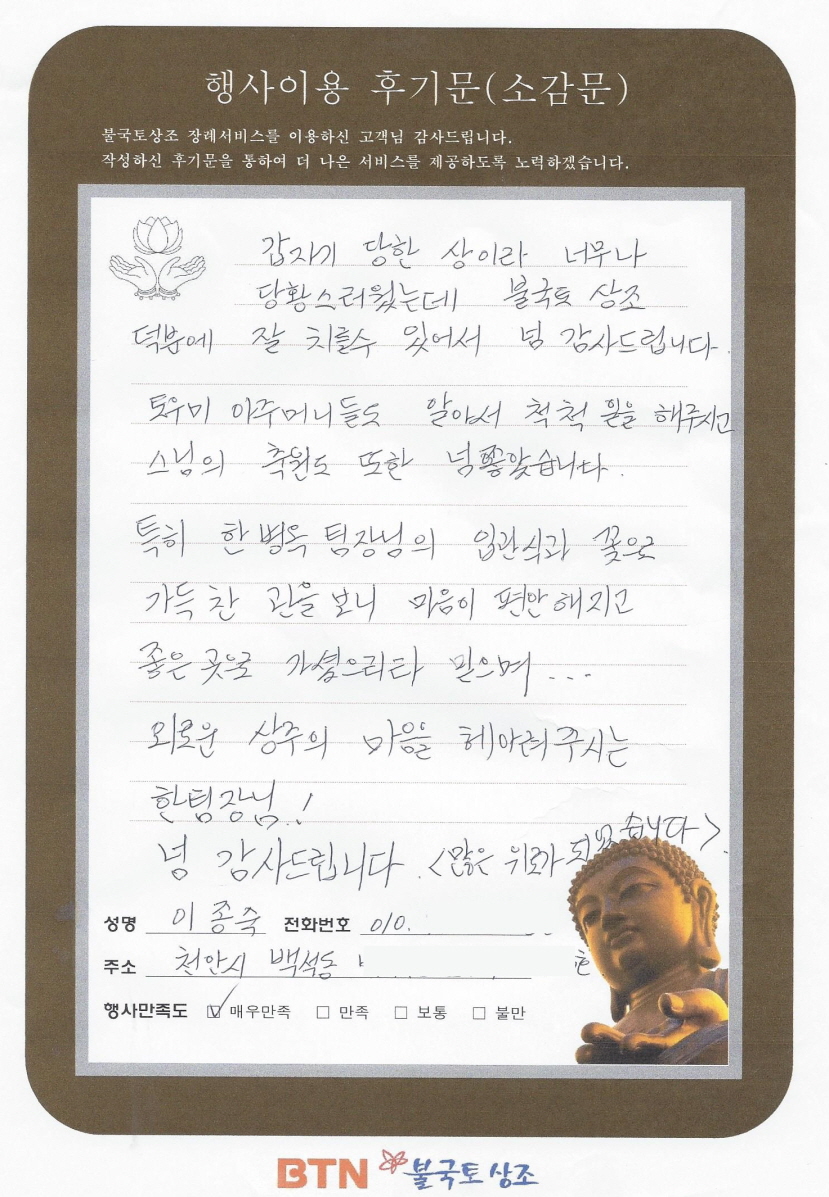 행사이용 후기문(소감문)
불국토상조 장례서비스를 이용하신 고객님 감사드립니다.
작성하신 후기문을 통하여 더 나은 서비스를 제공하도록 노력하겠습니다.
갑자기 당한 상이라 너무나
당황스러웠는데 불국토 상조
덕분에 잘 치를수 있어서 넘 감사드립니다.
도우미 아주머니들도 알아서 척척 일을 해주시고
스님의 축원도 또한 넘 좋았습니다.
특히 한병옥 팀장님의 입관식과 꽃으로
가득 찬 관을 보니 마음이 편안해지고
좋은 곳으로 가셨으리라 믿으며...
외로운 상주의 마음을 헤아려주시는
한팀장님!
넘 감사드립니다. <많은 위로가 되었습니다>.
성명 이종숙 전화번호 010.
주소 천안시 백석동
행사만족도 ☑ 매우만족 □ 만족 □ 보통 □ 불만
BTN 불국토상조